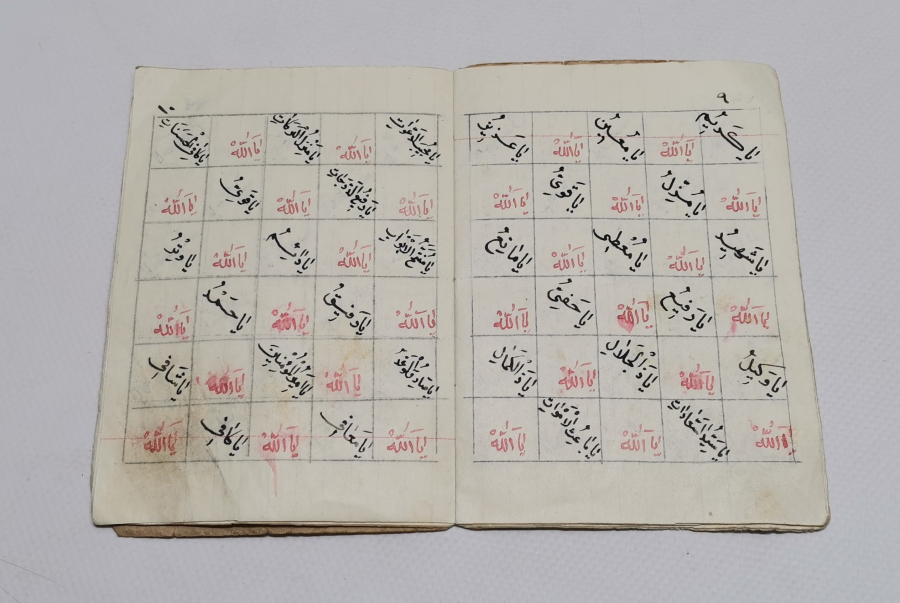 ٩
يا كريم يا الله يا معين يا الله يا عزيز
يا الله يا الله يا قوي يا الله
يا شهيد يا الله يا معطي يا الله يا مانع
يا الله يا رفيع يا الله يا حفي يا الله
يا وكيل يا الله يا ذالجلال يا الله يا ذالكمال
يا الله يا سيد السادات يا الله يا باعث الاموات يا الله
١٠
يا مجيب الدعوات يا الله يا منزل البركات يا الله يا
يا الله يا رفيع الدرجات يا الله يا قوي يا الله
يا مفتح الابواب يا الله يا دائم يا الله يا وتر
يا الله يا رفيق يا الله يا الله
يا صادق الوعد يا الله يا الله يا شافي
يا الله يا معافي يا الله يا كافي يا الله